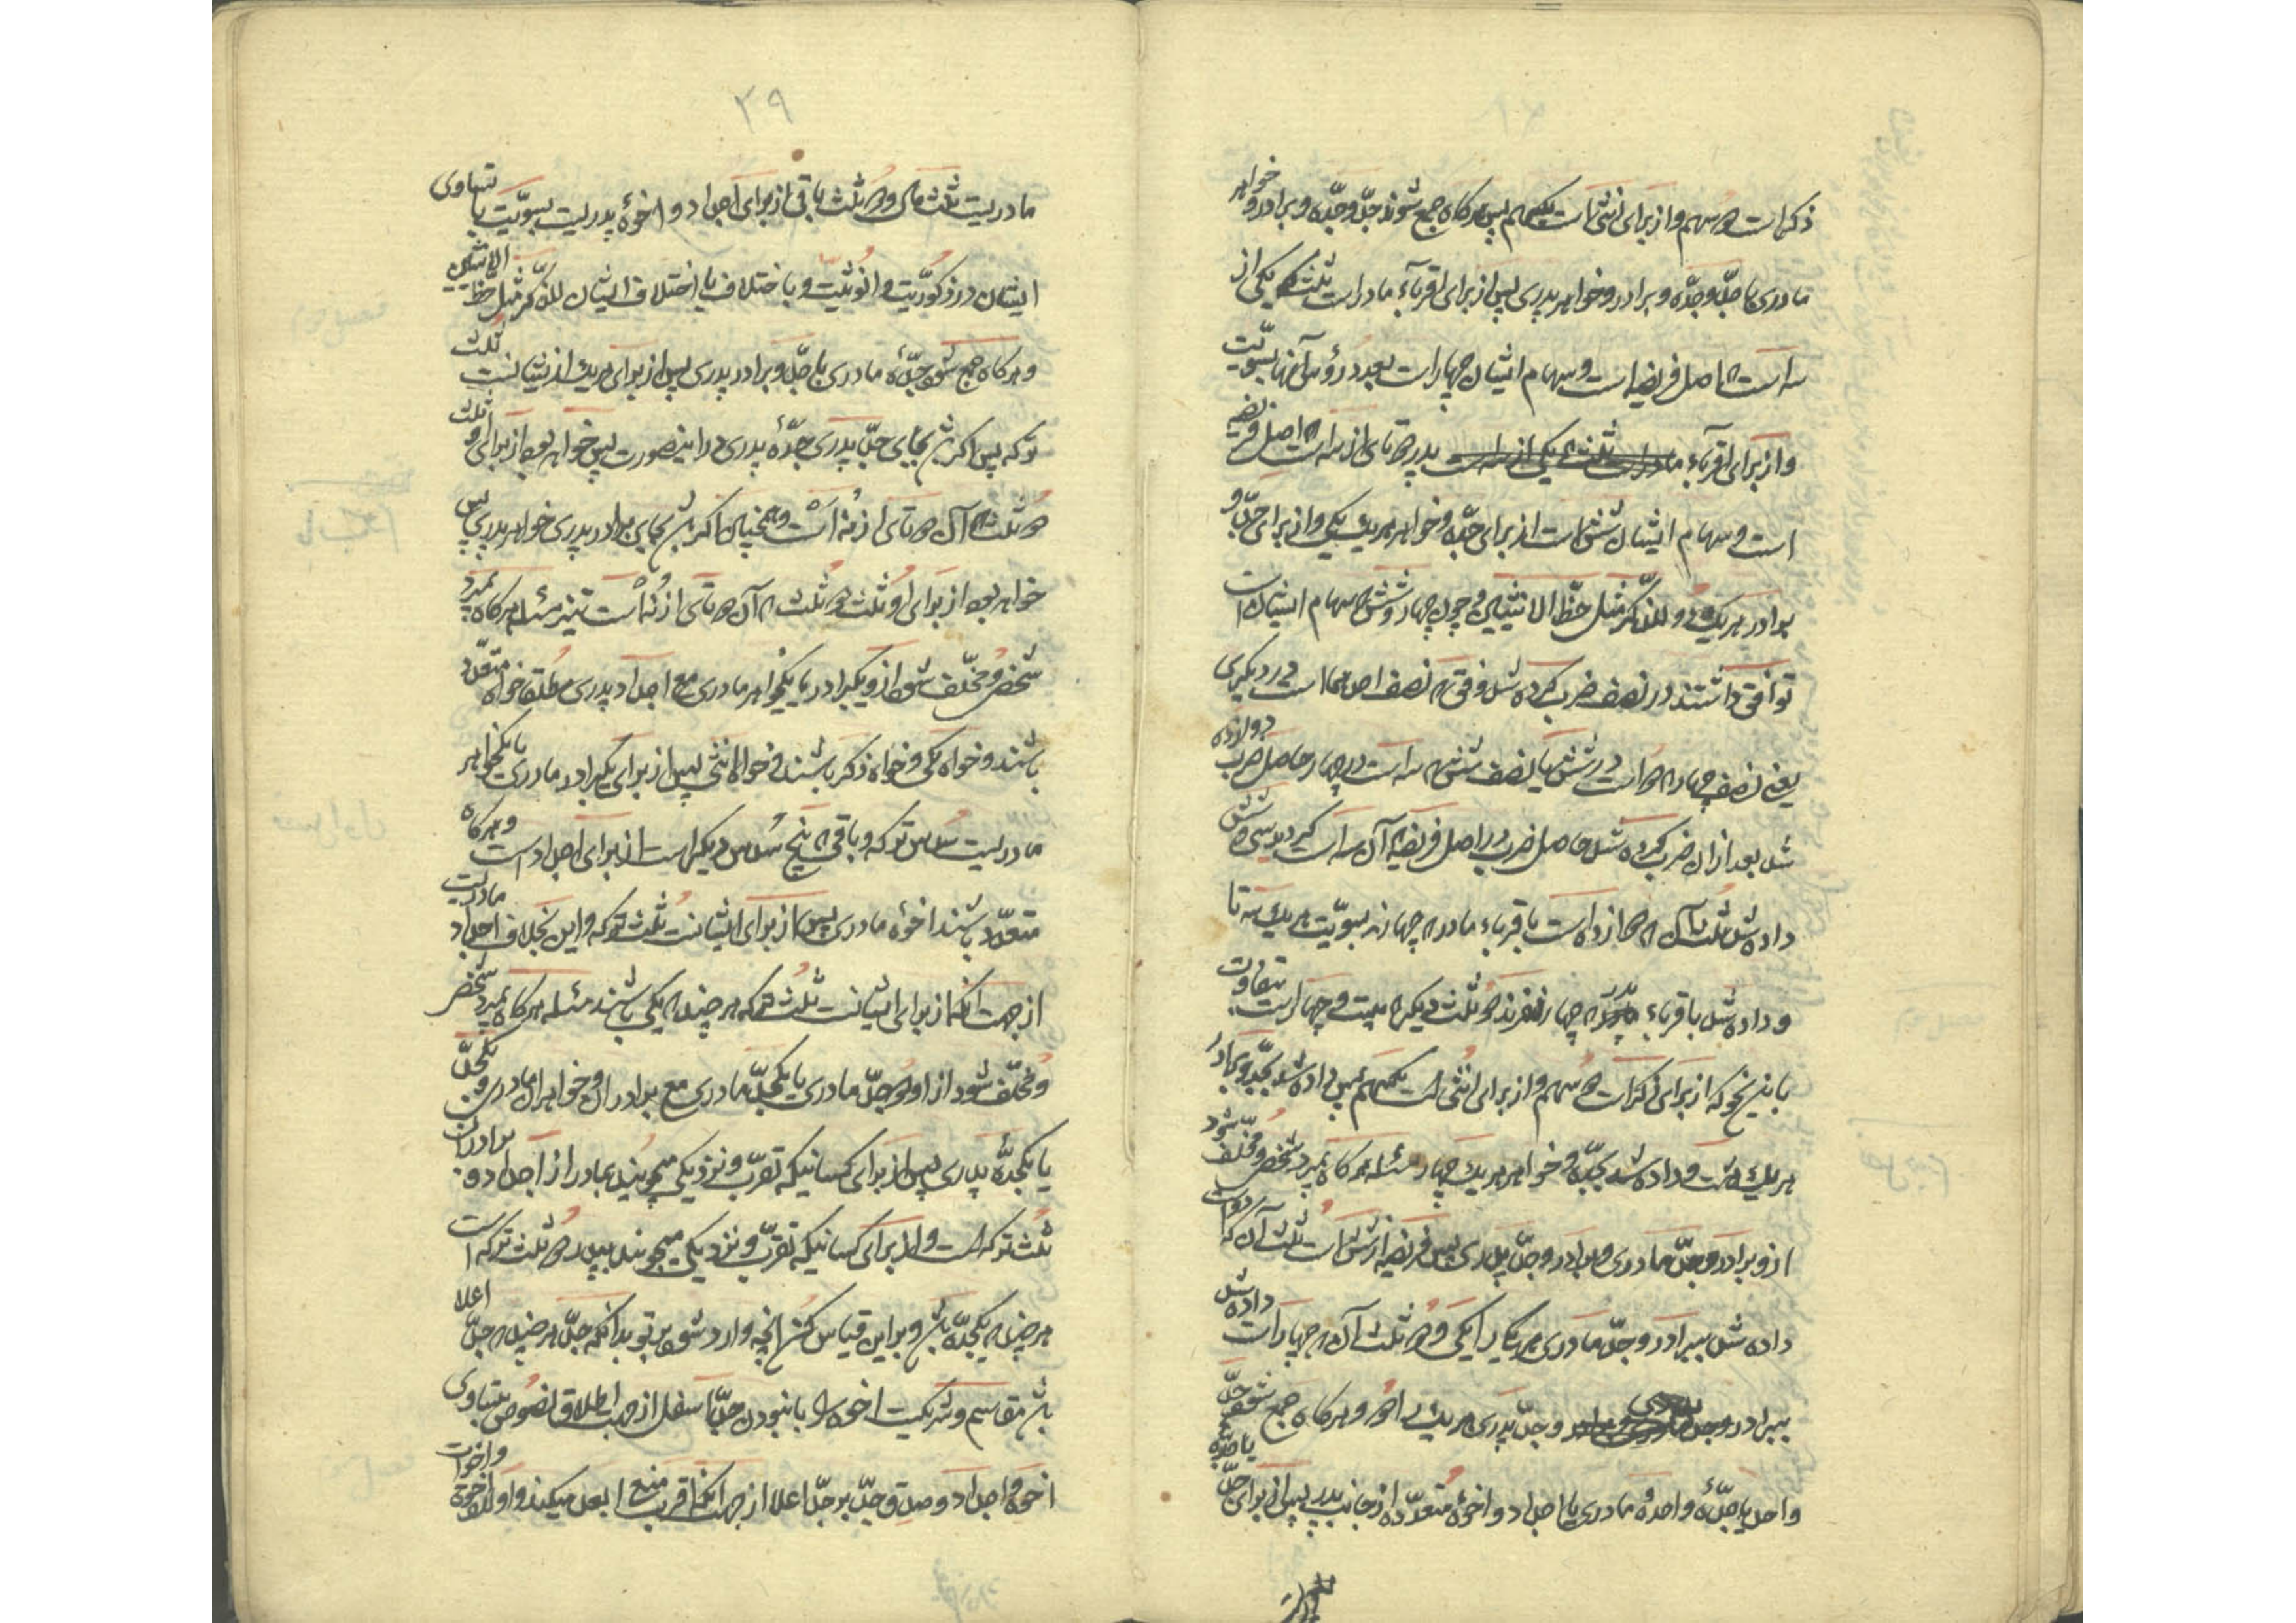 ذکر است دو سهم و از برای انثی است یکسهم پس هرگاه جمع شوند جدّ و جدّه و برادر و خواهر
مادری با جدّ و جدّه و برادر و خواهر پدری پس از برای اقرباء مادر است ثلث که یکی از
سه است که اصل فریضه است و سهام ایشان چهار است بعدد رؤس آنها بسویّت
و از برای اقرباء پدر دو تای از سه است که اصل فریضه
است و سهام ایشان شش است از برای جدّه و خواهر هر یک یکی و از برای جدّ و
برادر هر یک دو للذّکر مثل حظّ الانثیین و چون چهار و شش که سهام ایشان است
توافق داشتند در نصف ضرب کرده شد وفق که نصف احدهما است در دیگری
یعنی نصف چهار که دو است در شش یا نصف شش که سه است در چهار حاصل ضرب دوازده
شد بعد از آن ضرب کرده شد حاصل ضرب در اصل فریضه که آن سه است گردید سی و شش
داده شد ثلث آن که دوازده است باقرباء مادر که چهارند بسویّت هر یک سه تا
و داده شد باقرباء پدر که چهار نفرند دو ثلث دیگر که بیست و چهار است بتفاوت
باین نحو که از برای ذکر است دو سهم و از برای انثی است یکسهم پس داده شد بجدّ و برادر
هر یک هشت و داده شد بجدّه و خواهر هر یک چهار مسئله هرگاه بمیرد شخص و مخلّف شود
از و برادر و جدّ مادری و برادر و جدّ پدری پس فریضه از شش است ثلث آن که دو است
داده شد ببرادر و جدّ مادری هر یک را یکی و دو ثلث آن که چهار است داده شد
ببرادر و جدّ پدری هر یک را دو و هرگاه جمع شود جدّ
واحد یا جدّۀ واحدۀ مادری با اجداد و اخوۀ متعدّده از جانب پدر پس از برای جدّ یا جدّه
۲۹
مادریست ثلث مال و دو ثلث باقی از برای اجداد و اخوۀ پدریست بسویّت با تساوی
ایشان در ذکوریّت و انوثیّت و باختلاف با اختلاف ایشان للذّکر مثل حظّ الانثیین
و هرگاه جمع شود جدّۀ مادری با جدّ و برادر پدری پس از برای هر یک از ایشانست ثلث
ترکه پس اگر باشد بجای جدّ پدری جدّۀ پدری در اینصورت پس خواهد بود از برای او ثلث
دو ثلث که آن دو تای از نه است و همچنین اگر باشد بجای برادر پدری خواهر پدری پس
خواهد بود از برای او ثلث دو ثلث که آن دو تای از نه است نیز مسئله هرگاه بمیرد
شخص و مخلّف شود از و یکبرادر یا یکخواهر مادری مع اجداد پدری مطلقا خواه متعدّد
باشند و خواه یکی و خواه ذکر باشند و خواه انثی پس از برای یکبرادر مادری یا یکخواهر
مادریست سدس ترکه و باقی که پنج سدس دیگر است از برای اجداد است و هرگاه
متعدّد باشند اخوۀ مادری پس از برای ایشانست ثلث ترکه و این بخلاف اجداد مادریست
از جهت آنکه از برای ایشانست ثلث ترکه هر چند که یکی باشند مسئله هرگاه بمیرد شخص
و مخلّف شود از او جدّ مادری یا یکجدّۀ مادری مع برادران و خواهران مادری و یکجدّ
یا یکجدّۀ پدری پس از برای کسانیکه تقرّب و نزدیکی میجویند بمادر از اجداد و برادران
ثلث ترکه است و از برای کسانیکه تقرّب و نزدیکی میجویند بپدر دو ثلث ترکه است
هر چند که یکجدّه باشد و بر این قیاس کن آنچه وارد شود بر تو بدانکه جدّ هر چند که جدّ اعلا
باشد مقاسم و شریکست اخوه را با نبودن جدّ اسفل از جهت اطلاق نصوص بتساوی
اخوه و اجداد و صدق جدّ بر جدّ اعلا از جهت آنکه اقرب منع ابعد میکند و اولاد اخوة و اخوات